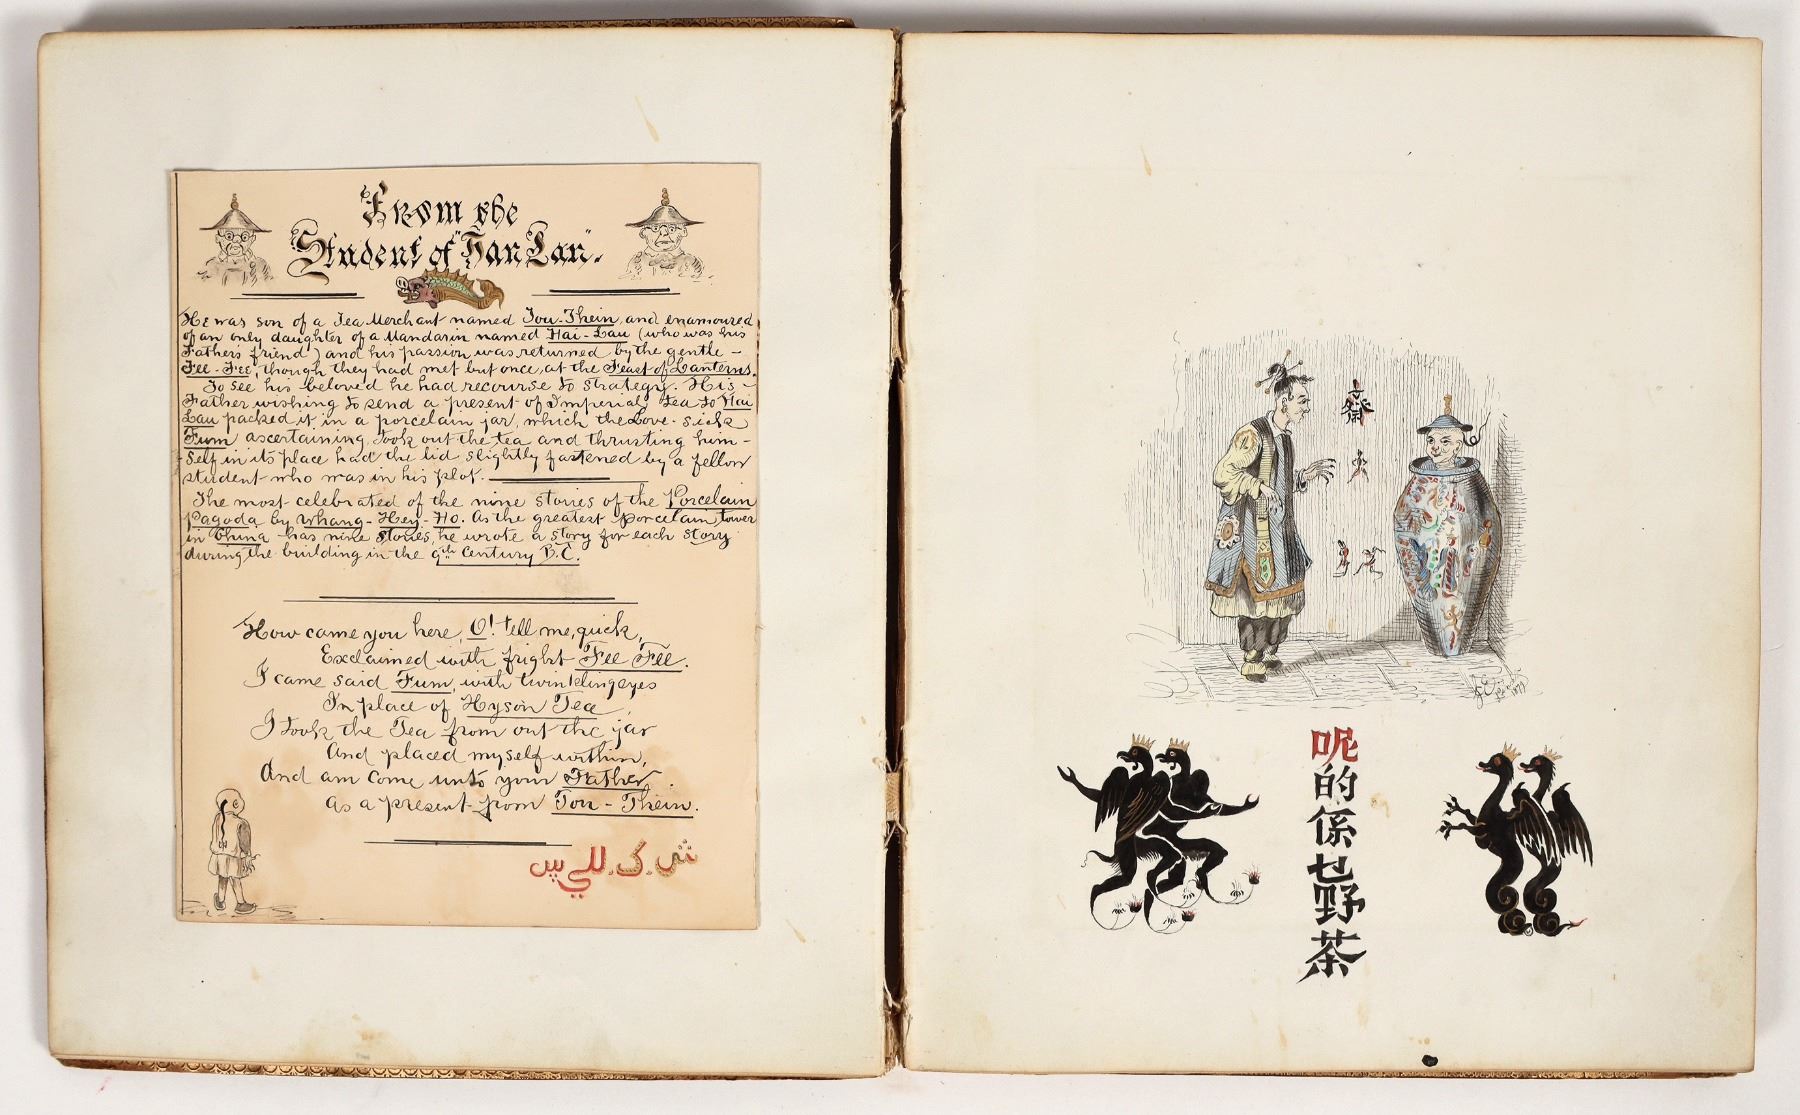 From the
Student of "Tan Lan".
He was son of a Tea Merchant named Tou-Thein, and enamoured
of an only daughter of a Mandarin named Hai-Lau (who was his
Father's friend) and his passion was returned by the gentle -
Fee-Fee, though they had met but once, at the Feast of Lanterns.
To see his beloved he had recourse to strategy. His -
Father wishing to send a present of Imperial Tea to Hai
Lau packed it in a porcelain jar, which the Love-sick
Fum ascertaining, took out the tea and thrusting him -
self in its place had the lid slightly fastened by a fellow
student who was in his plot.
The most celebrated of the nine stories of the Porcelain
Pagoda by Whang-Hey-Ho. As the greatest porcelain tower
in China has nine stories, he wrote a story for each story
during the building in the 9th Century B.C.
How came you here, O! tell me, quick,
Exclaimed with fright Fee Fee.
I came said Fum, with twinkling eyes
In place of Hyson Tea,
I took the Tea from out the jar
And placed myself within,
And am come unto your Father
As a present from Tou-Thein.
呢
的
係
乜
野
茶